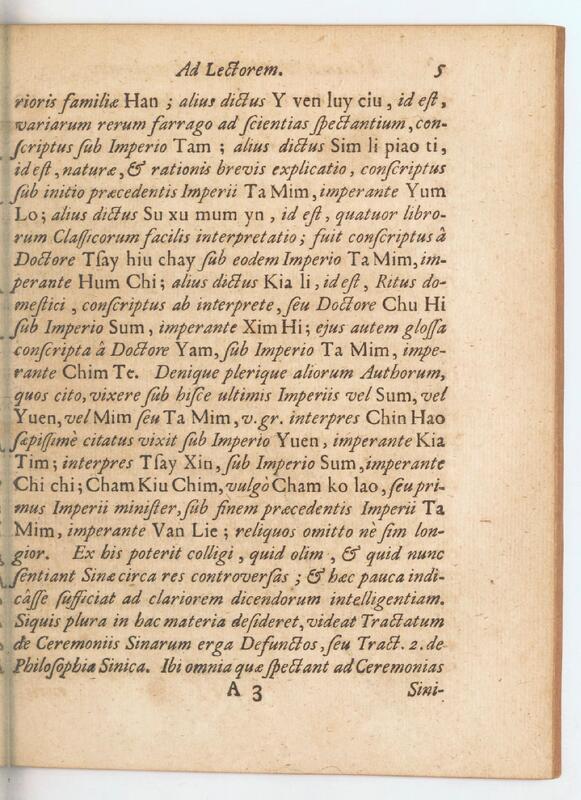 Ad Lectorem. 5
rioris familiæ Han ; alius dictus Y ven luy ciu , id est ,
variarum rerum farrago ad scientias spectantium, con-
scriptus sub Imperio Tam ; alius dictus Sim li piao ti ,
id est , naturæ, & rationis brevis explicatio , conscriptus
sub initio præcedentis Imperii Ta Mim, imperante Yum
Lo; alius dictus Su xu mum yn , id est, quatuor libro-
rum Classicorum facilis interpretatio ; fuit conscriptus â
Doctore Tsay hiu chay sub eodem Imperio Ta Mim, im-
perante Hum Chi; alius dictus Kia li, id est , Ritus do-
mestici , conscriptus ab interprete, seu Doctore Chu Hi
sub Imperio Sum , imperante Xim Hi; ejus autem glossa
conscripta â Doctore Yam, sub Imperio Ta Mim , impe-
rante Chim Te. Denique plerique aliorum Authorum,
quos cito, vixere sub hisce ultimis Imperiis vel Sum, vel
Yuen, vel Mim seu Ta Mim, v. gr. interpres Chin Hao
sæpissimè citatus vixit sub Imperio Yuen , imperante Kia
Tim; interpres Tsay Xin, sub Imperio Sum, imperante
Chi chi; Cham Kiu Chim, vulgò Cham ko lao, seu pri-
mus Imperii minister, sub finem præcedentis Imperii Ta
Mim, imperante Van Lie ; reliquos omitto nè sim lon-
gior. Ex his poterit colligi , quid olim , & quid nunc
sentiant Sinæ circa res controversas ; & hæc pauca indi-
câsse sufficiat ad clariorem dicendorum intelligentiam.
Siquis plura in hac materia desideret, videat Tractatum
de Ceremoniis Sinarum erga Defunctos, seu Tract. 2. de
Philosophia Sinica. Ibi omnia quæ spectant ad Ceremonias
A 3 Sini-